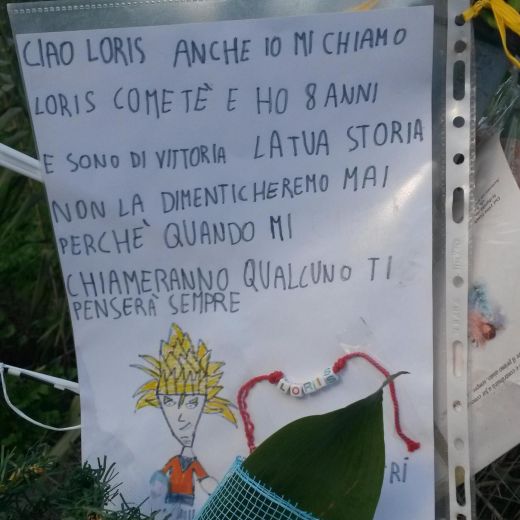 CIAO LORIS ANCHE IO MI CHIAMO
LORIS COME TÈ E HO 8 ANNI
E SONO DI VITTORIA LA TUA STORIA
NON LA DIMENTICHEREMO MAI
PERCHÈ QUANDO MI
CHIAMERANNO QUALCUNO TI
PENSERÀ SEMPRE
LORIS